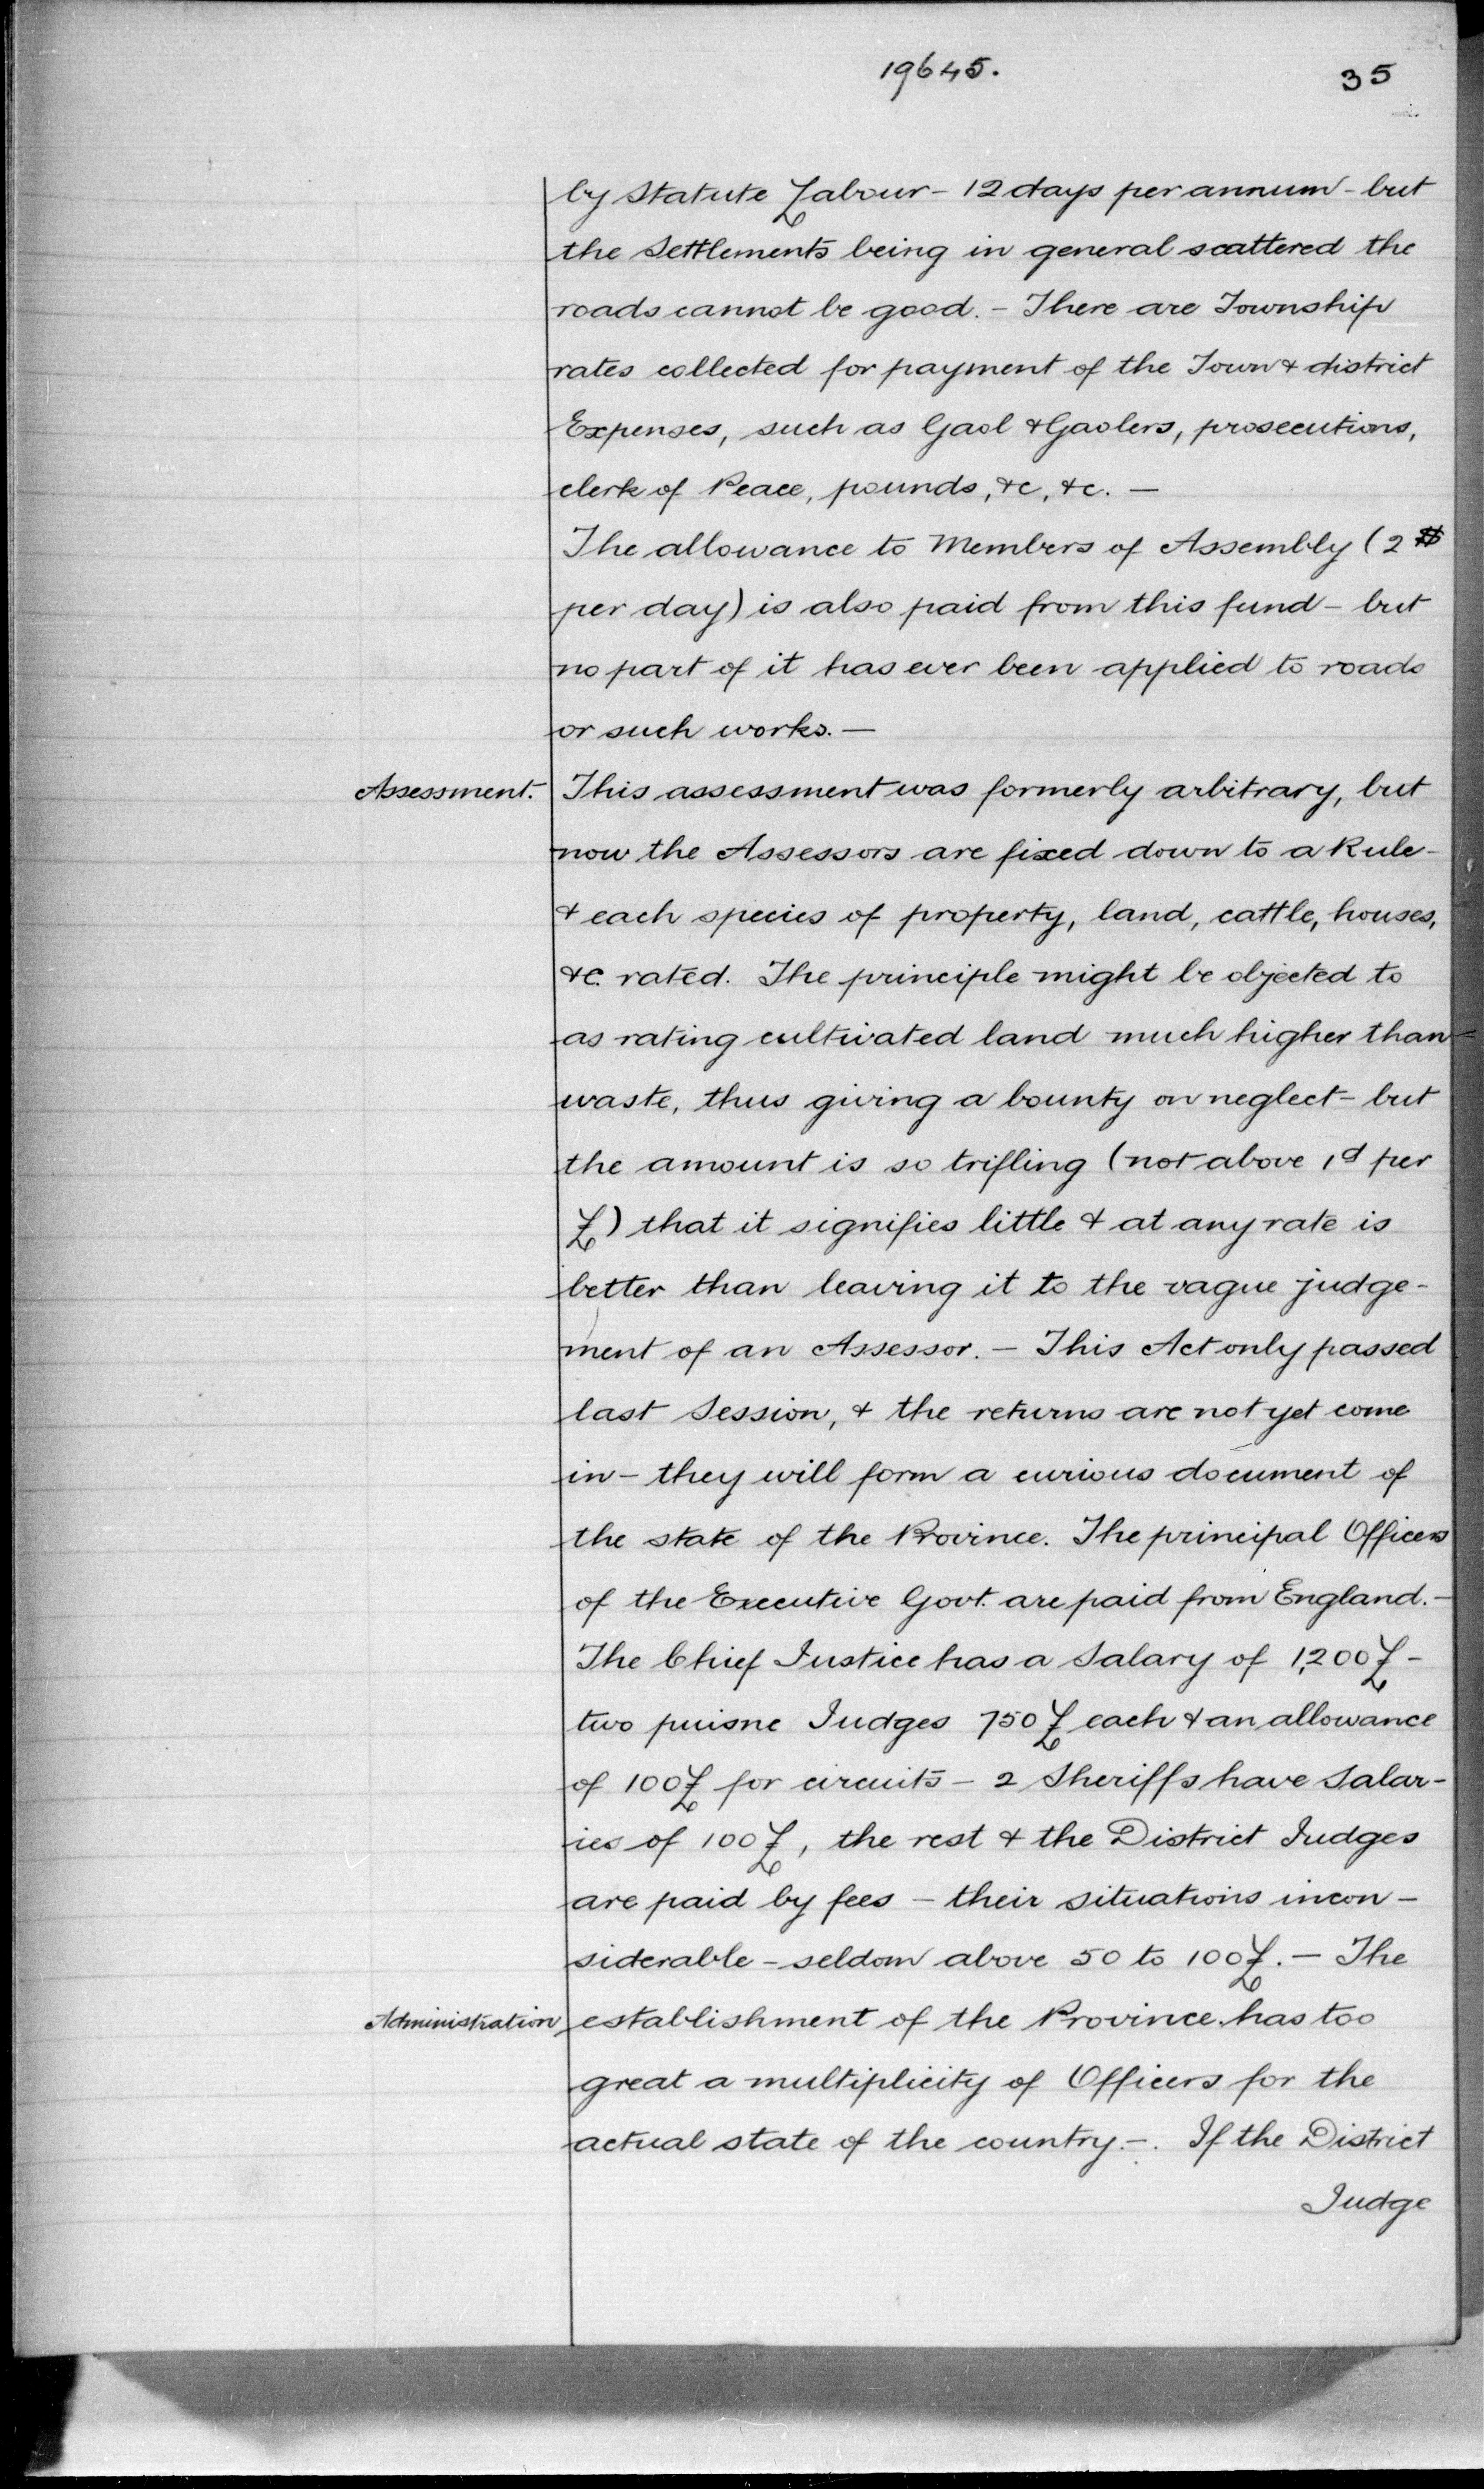 19645.
35
by Statute Labour - 12 days per annum - but
the Settlements being in general scattered the
roads cannot be good. - There are Township
rates collected for payment of the Town & district
Expenses, such as Gaol & Gaolers, prosecutions,
clerk of Peace, pounds, &c, &c. —
The allowance to Members of Assembly (2 $
per day) is also paid from this fund - but
no part of it has ever been applied to roads
or such works. —
Assessment. This assessment was formerly arbitrary, but
now the Assessors are fixed down to a Rule -
& each species of property, land, cattle, houses,
&c. rated. The principle might be objected to
as rating cultivated land much higher than
waste, thus giving a bounty on neglect - but
the amount is so trifling (not above 1d per
£) that it signifies little & at any rate is
better than leaving it to the vague judge-
ment of an Assessor. - This Act only passed
last Session, & the returns are not yet come
in - they will form a curious document of
the state of the Province. The principal Officers
of the Executive Govt. are paid from England. -
The Chief Justice has a Salary of 1,200 £ -
two puisne Judges 750 £ each & an allowance
of 100 £ for circuits - 2 Sheriffs have Salar-
ies of 100 £, the rest & the District Judges
are paid by fees - their situations incon-
siderable - seldom above 50 to 100 £. - The
Administration establishment of the Province has too
great a multiplicity of Officers for the
actual state of the country. -. If the District
Judge